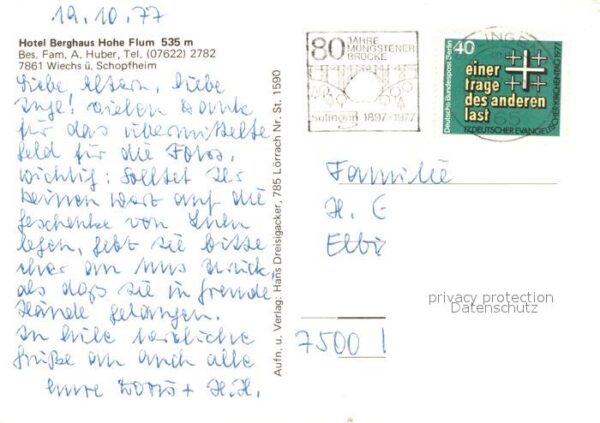 19.10.77
Hotel Berghaus Hohe Flum 535 m
Bes. Fam. A. Huber, Tel. (07622) 2782
7861 Wiechs ü. Schopfheim
Liebe Eltern, liebe
Inge! Vielen Dank
für das übermittelte
Geld für die Fotos.
Wichtig: Solltet Ihr
keinen Wert auf die
Geschenke von Ihnen
legen, gebt sie bitte
eher an uns zurück
als daß sie in fremde
Hände gelangen.
In Eile herzliche
Grüße an Euch alle
Eure Doris + H.H.
Aufn. u. Verlag: Hans Dreisigacker, 785 Lörrach Nr. St. 1590
80 JAHRE
MÜNGSTENER
BRÜCKE
Solingen 1897-1977
Deutsche Bundespost Berlin
40
einer
trage
des anderen
last
17. DEUTSCHER EVANGELISCHER KIRCHENTAG 1977
Familie
H. E
privacy protection
Datenschutz
7500 1